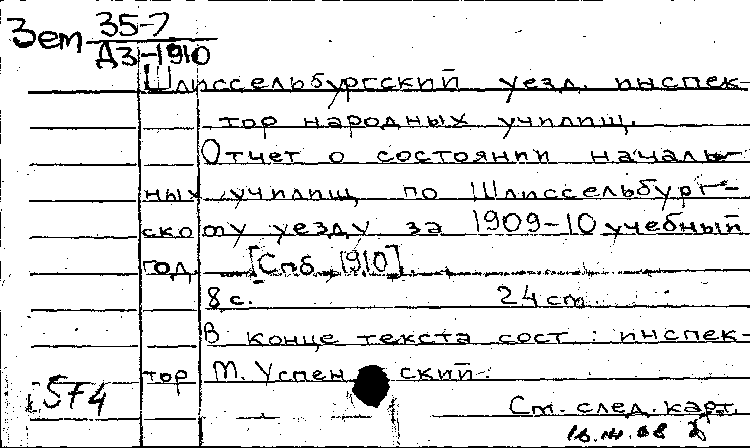 Зем 35-7
ДЗ-1910
Шлиссельбургский уезд. инспек-
тор народных училищ.
Отчет о состоянии началь-
ных училищ по Шлиссельбург-
скому уезду за 1909-10 учебный
год. [Спб, 1910].
8 с. 24 cm.
В конце текста сост: инспек-
тор М. Успенский.
См. след. карт.